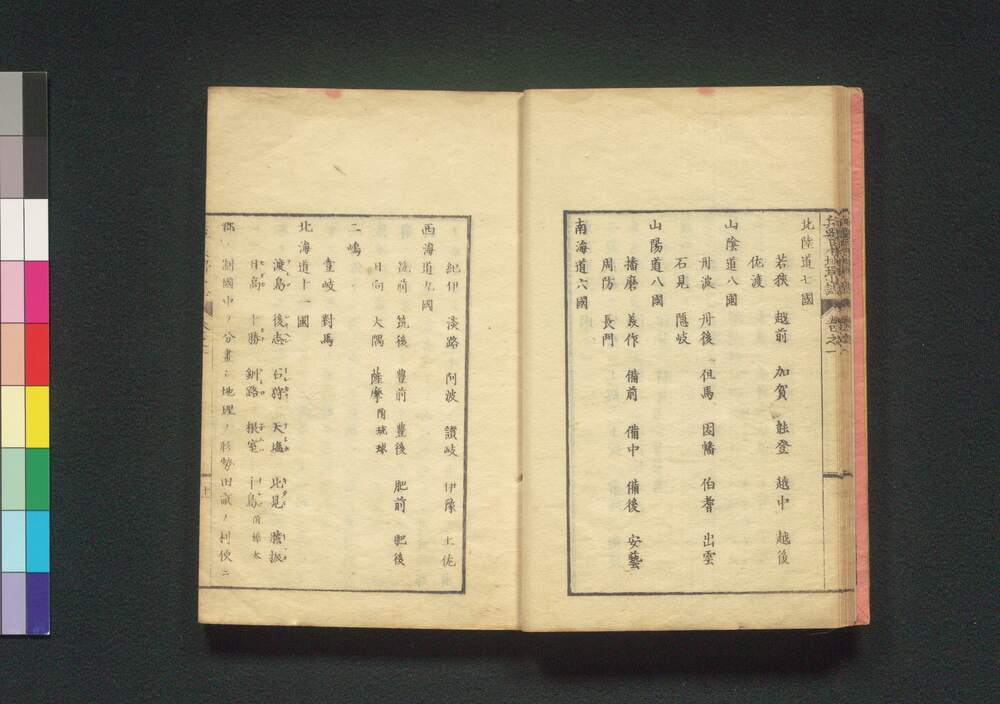 北陸道七國
若狹 越前 加賀 能登 越中 越後
佐渡
山陰道八國
丹波 丹後 但馬 因幡 伯耆 出雲
石見 隱岐
山陽道八國
播磨 美作 備前 備中 備後 安藝
周防 長門
南海道六國
紀伊 淡路 阿波 讚岐 伊豫 土佐
西海道九國
筑前 筑後 豊前 豊後 肥前 肥後
日向 大隅 薩摩 附琉球
二嶋
壹岐 對馬
北海道十一國
渡島 後志 石狩 天塩 北見 膽振
日高 十勝 釧路 根室 千島 附樺太
郡ハ一國中ノ分畫ニ地理ノ形勢田畝ノ